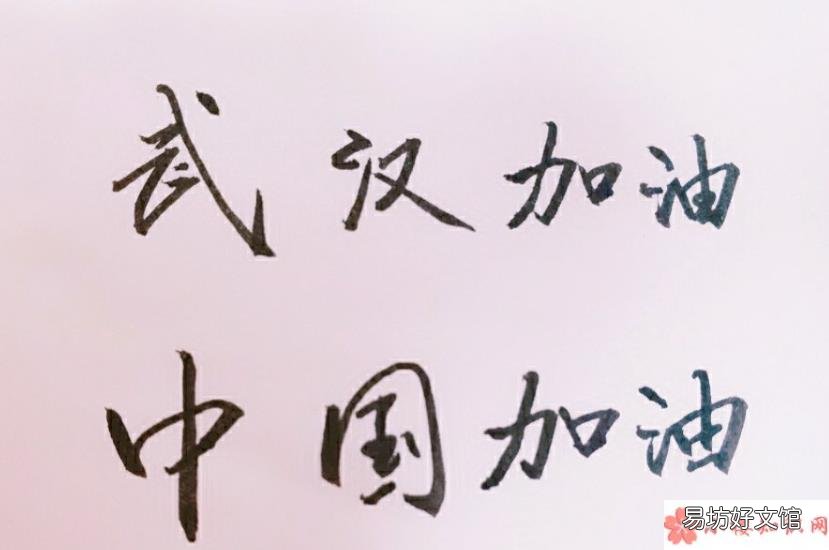 武汉加油
中国加油
易坊好文馆